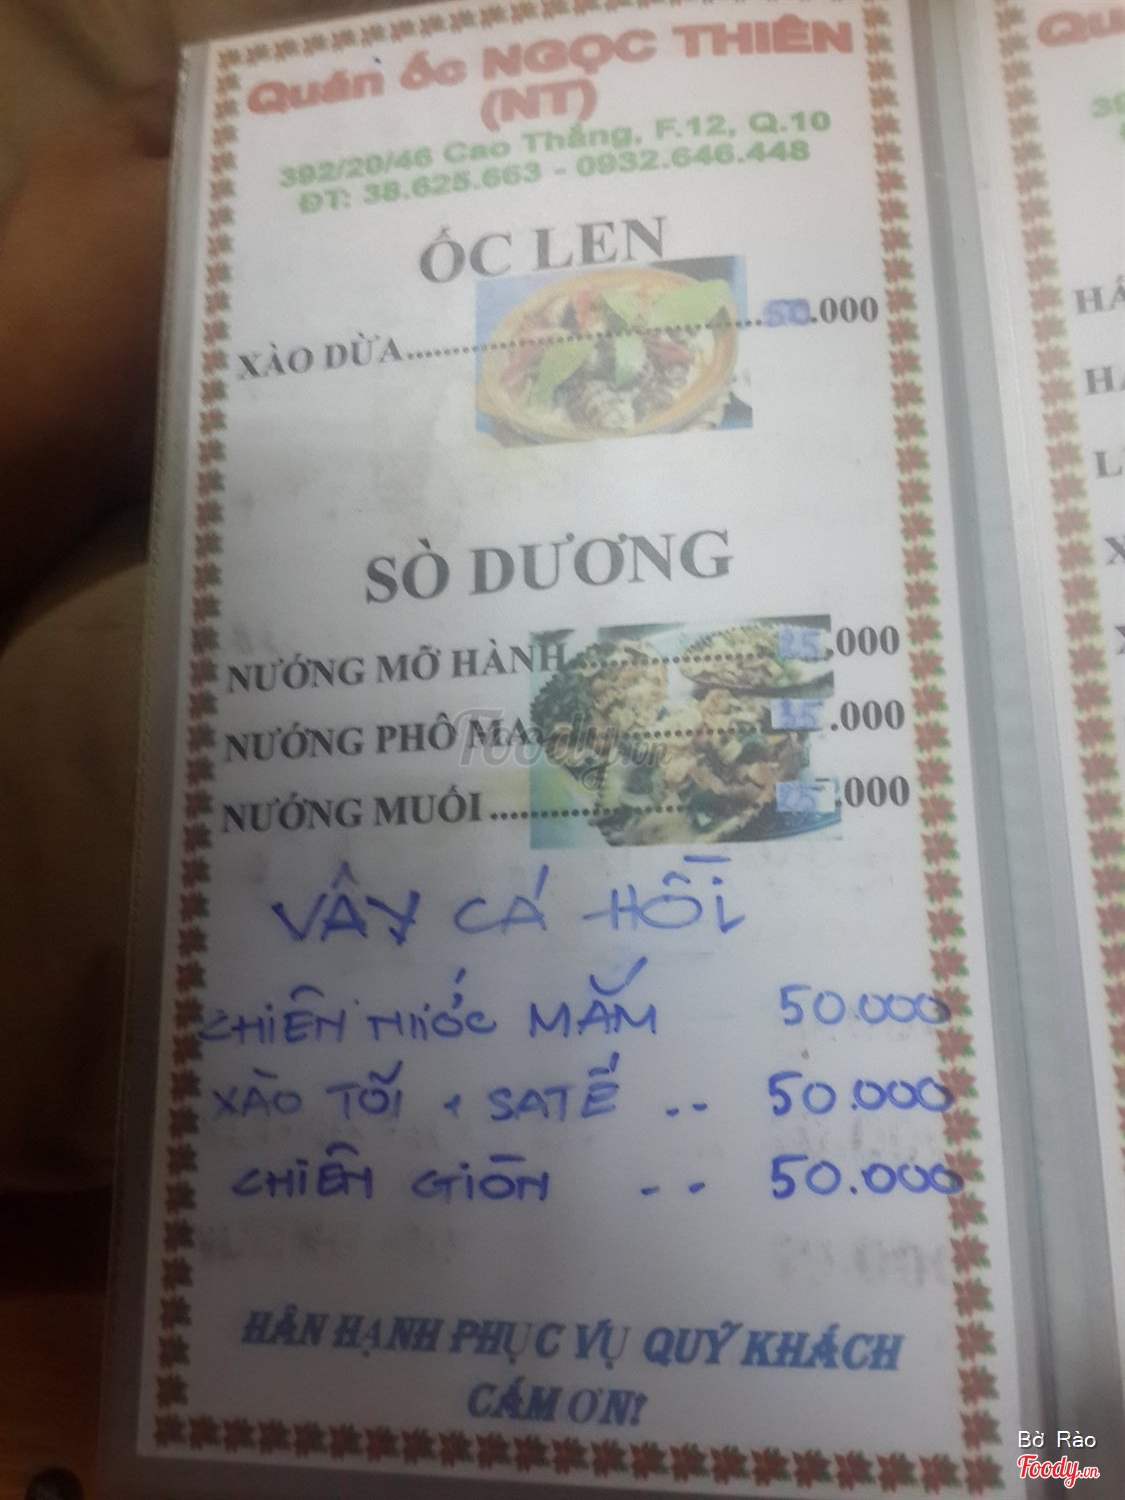 Quán ốc NGỌC THIÊN
(NT)
392/20/46 Cao Thắng, F.12, Q.10
ĐT: 38.625.663 - 0932.646.448
ỐC LEN
XÀO DỪA..........50.000
SÒ DƯƠNG
NƯỚNG MỠ HÀNH..........25.000
NƯỚNG PHÔ MA..........35.000
NƯỚNG MUỐI..........25.000
VÂY CÁ HỒI
CHIÊN NƯỚC MẮM 50.000
XÀO TỎI + SATẾ .. 50.000
CHIÊN GIÒN .. 50.000
HÂN HẠNH PHỤC VỤ QUÝ KHÁCH
CÁM ƠN!
Foody.vn
Bờ Rào
Foody.vn